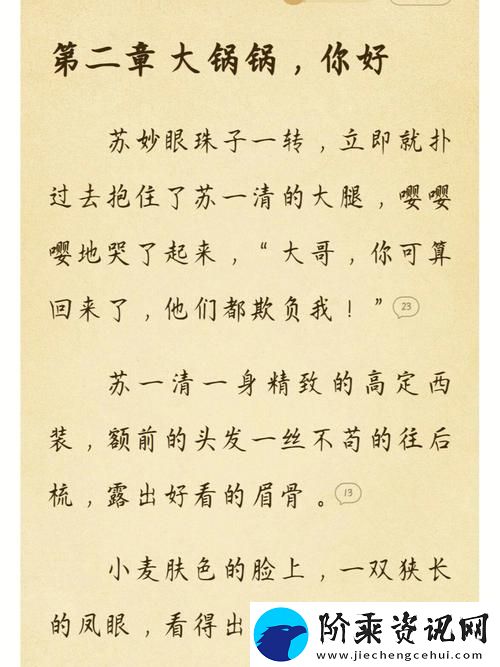 第二章 大锅锅，你好
苏妙眼珠子一转，立即就扑
过去抱住了苏一清的大腿，嘤嘤
嘤地哭了起来，“大哥，你可算
回来了，他们都欺负我！” 23
苏一清一身精致的高定西
装，额前的头发一丝不苟的往后
梳，露出好看的眉骨。 13
小麦肤色的脸上，一双狭长
的凤眼，看得出
阶乘资讯网
www.jiechengcehui.com